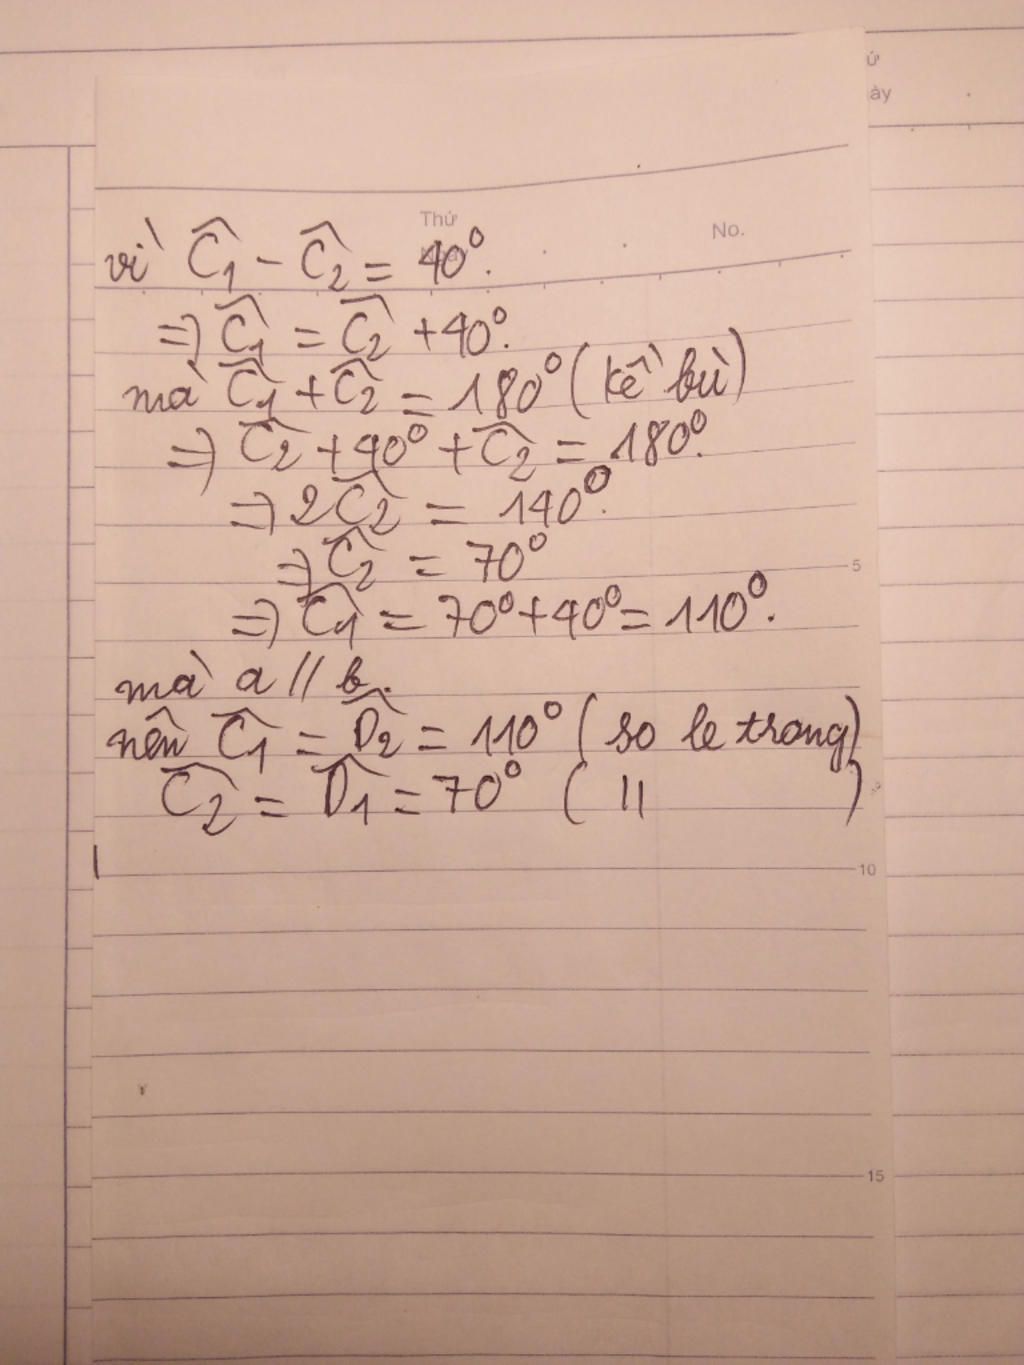 ứ
ày
Thứ
No.
vì Ĉ₁ - Ĉ₂ = 40°.
=> Ĉ₁ = Ĉ₂ + 40°.
mà Ĉ₁ + Ĉ₂ = 180° (kề bù)
=> Ĉ₂ + 40° + Ĉ₂ = 180°.
=> 2Ĉ₂ = 140°.
=> Ĉ₂ = 70°
5
=> Ĉ₁ = 70° + 40° = 110°.
mà a // b.
nên Ĉ₁ = D̂₂ = 110° (so le trong)
Ĉ₂ = D̂₁ = 70° ( // )
10
15